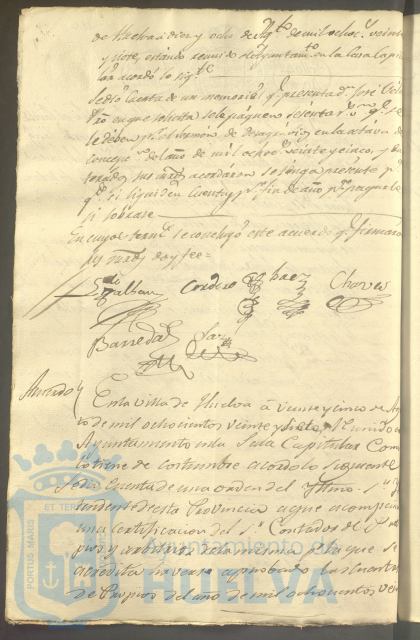 de Huelva a diez y ocho de Ag.to de mil ochoc.s veinte
y siete, estando reunido el Ayuntam.to en la Casa Capitu
lar acordó lo sig.te
Se dio cuenta de un memorial q.e presenta d.n José
en que solicita se le paguen sesenta r.s v.n q.e se
le deben p.r el sermon de en la octava de
Concepc.n del año de mil ochoc.s veinte y cinco, y
sus mrds acordaron se tenga presente p.a
q.e si liquiden cuentas p.r fin de año p.a pagarle
si sobrase
En cuyos term.s se concluyó este acuerdo q.e firmaron
sus mrds doy fee =
Cordero Baez Chaves
Barreda
Acuerdo
En la villa de Huelva á veinte y cinco de Ag
to de mil ochocientos veinte y siete, reunido
Ayuntamiento en la Sala Capitular Como
lo tiene de costumbre acordó lo siguiente
Se dio Cuenta de una orden del Yltmo. S.r Yn
tendente de esta Provincia a que acompaña
una certificacion del S.r Contador de Pro
pios y arbitrios de la misma por lo que se
acredita haverse aprobado las Cuentas
de Propios del año de mil ochocientos vein
PORTUS MARIS ET TERRAE
Ayuntamiento de
HUELVA